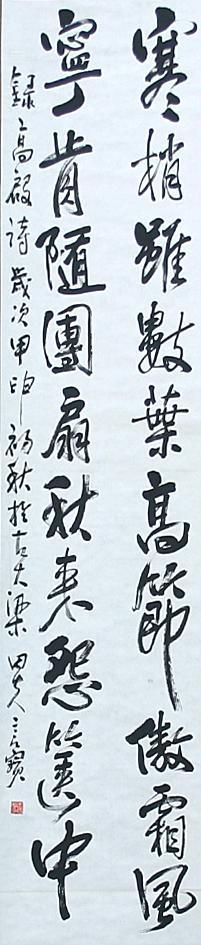 寒梢雖數葉高節傲霜風
寧肯隨團扇秋來怨篋中
錄高啟詩歲次甲申初秋於古大梁田夫三寶